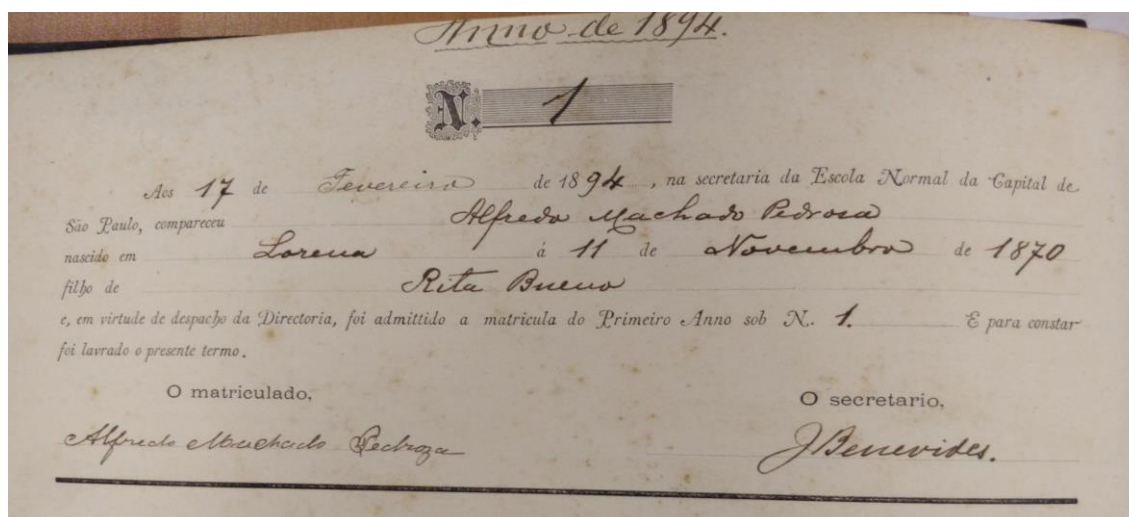 Anno de 1894.
N. 1
Aos 17 de Fevereiro de 1894, na secretaria da Escola Normal da Capital de
São Paulo, compareceu Alfredo Machado Pedrosa
nascido em Lorena á 11 de Novembro de 1870
filho de Rita Bueno
e, em virtude de despacho da Directoria, foi admittido a matricula do Primeiro Anno sob N. 1. E para constar
foi lavrado o presente termo.
O matriculado, O secretario,
Alfredo Machado Pedroza J Benevides.